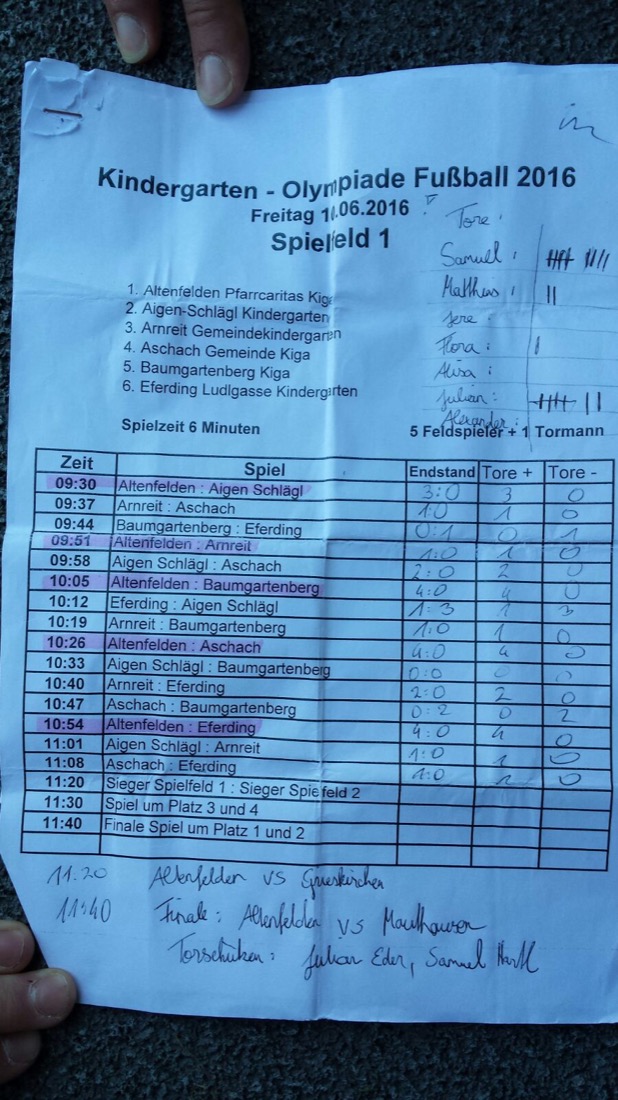 Kindergarten - Olympiade Fußball 2016
Freitag 10.06.2016
Spielfeld 1
Tore:
Samuel: |||| ||||
Matthias: ||
Jere:
Flora: |
Alisa:
Julian: |||| ||
Alexander:
1. Altenfelden Pfarrcaritas Kiga
2. Aigen-Schlägl Kindergarten
3. Arnreit Gemeindekindergarten
4. Aschach Gemeinde Kiga
5. Baumgartenberg Kiga
6. Eferding Ludlgasse Kindergarten
Spielzeit 6 Minuten 5 Feldspieler + 1 Tormann
Zeit Spiel Endstand Tore + Tore -
09:30 Altenfelden : Aigen Schlägl 3:0 3 0
09:37 Arnreit : Aschach 1:0 1 0
09:44 Baumgartenberg : Eferding 0:1 0 1
09:51 Altenfelden : Arnreit 1:0 1 0
09:58 Aigen Schlägl : Aschach 2:0 2 0
10:05 Altenfelden : Baumgartenberg 4:0 4 0
10:12 Eferding : Aigen Schlägl 1:3 1 3
10:19 Arnreit : Baumgartenberg 1:0 1 0
10:26 Altenfelden : Aschach 4:0 4 0
10:33 Aigen Schlägl : Baumgartenberg 0:0 0 0
10:40 Arnreit : Eferding 2:0 2 0
10:47 Aschach : Baumgartenberg 0:2 0 2
10:54 Altenfelden : Eferding 4:0 4 0
11:01 Aigen Schlägl : Arnreit 1:0 1 0
11:08 Aschach : Eferding 1:0 1 0
11:20 Sieger Spielfeld 1 : Sieger Spielfeld 2
11:30 Spiel um Platz 3 und 4
11:40 Finale Spiel um Platz 1 und 2
11.20 Altenfelden VS Grieskirchen
11:40 Finale: Altenfelden VS Mauthausen
Torschützen: Julian Eder, Samuel Hartl